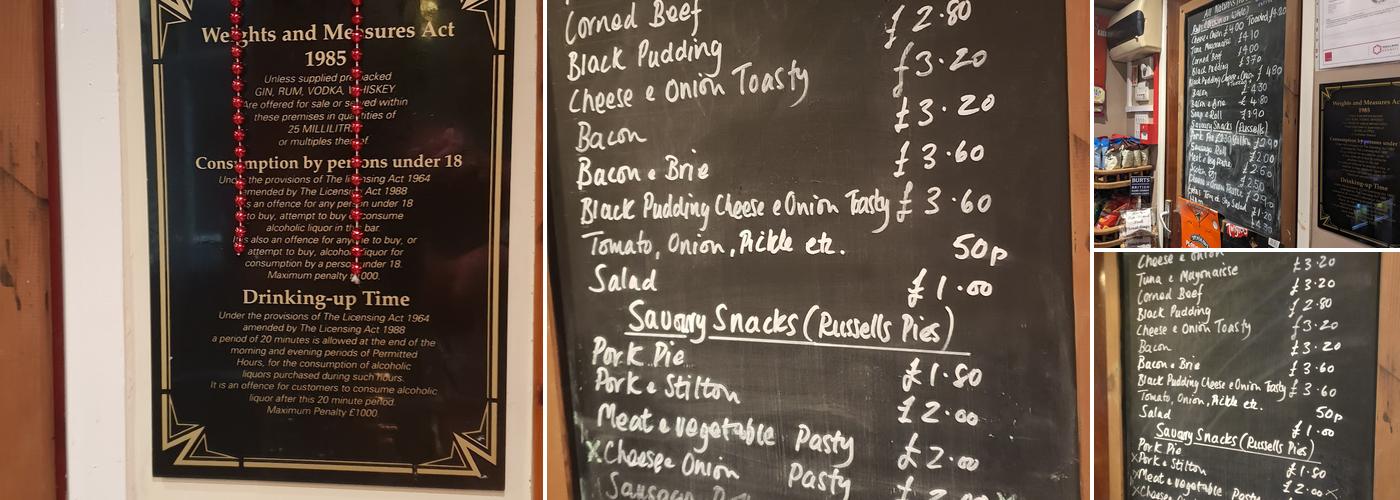 Weights and Measures Act
1985
Unless supplied pre packed
GIN, RUM, VODKA, WHISKEY
Are offered for sale or served within
these premises in quantities of
25 MILLILITRES
or multiples thereof
Consumption by persons under 18
Under the provisions of The Licensing Act 1964
amended by The Licensing Act 1988
is an offence for any person under 18
to buy, attempt to buy or consume
alcoholic liquor in the bar.
It is also an offence for anyone to buy, or
attempt to buy, alcoholic liquor for
consumption by a person under 18.
Maximum penalty
Drinking-up Time
Under the provisions of The Licensing Act 1964
amended by The Licensing Act 1988
a period of 20 minutes is allowed at the end of the
morning and evening periods of Permitted
Hours, for the consumption of alcoholic
liquors purchased during such hours.
It is an offence for customers to consume alcoholic
liquor after this 20 minute period.
Maximum Penalty £1000
Corned Beef £2.80
Black Pudding £3.20
Cheese e Onion Toasty £3.20
Bacon £3.60
Bacon e Brie £3.60
Black Pudding Cheese e Onion Toasty
Tomato, Onion, Pickle etc. 50p
Salad £1.00
Savoury Snacks (Russells Pies)
Pork Pie £1.80
Pork e Stilton £2.00
Meat e vegetable Pasty £2.00
X Cheese e Onion Pasty
Cheese e Onion £4.00 Toasted £4.20
Tuna Mayonnaise £4.10
Corned Beef £4.00
Black Pudding £3.70
Black Pudding Cheese e Onion £4.80
Bacon £4.30
Bacon e Brie £4.80
Soup e Roll £3.90
Savoury Snacks (Russells)
Pork Pie
Sausage Roll £2.00
Scotch Egg £2.50
£1.20
BURTS
BRITISH
Weights and Measures Act
1985
Consumption by persons under
Drinking-up Time
Cheese e Onion £3.20
Tuna e Mayonaisse £3.20
Corned Beef £2.80
Black Pudding £3.20
Cheese e Onion Toasty £3.20
Bacon £3.60
Bacon e Brie £3.60
Black Pudding Cheese e Onion Toasty
Tomato, Onion, Pickle etc. 50p
Salad £1.00
Savoury Snacks (Russells Pies)
Pork Pie £1.80
X Pork e Stilton £2.00
Meat e vegetable Pasty
X Cheese